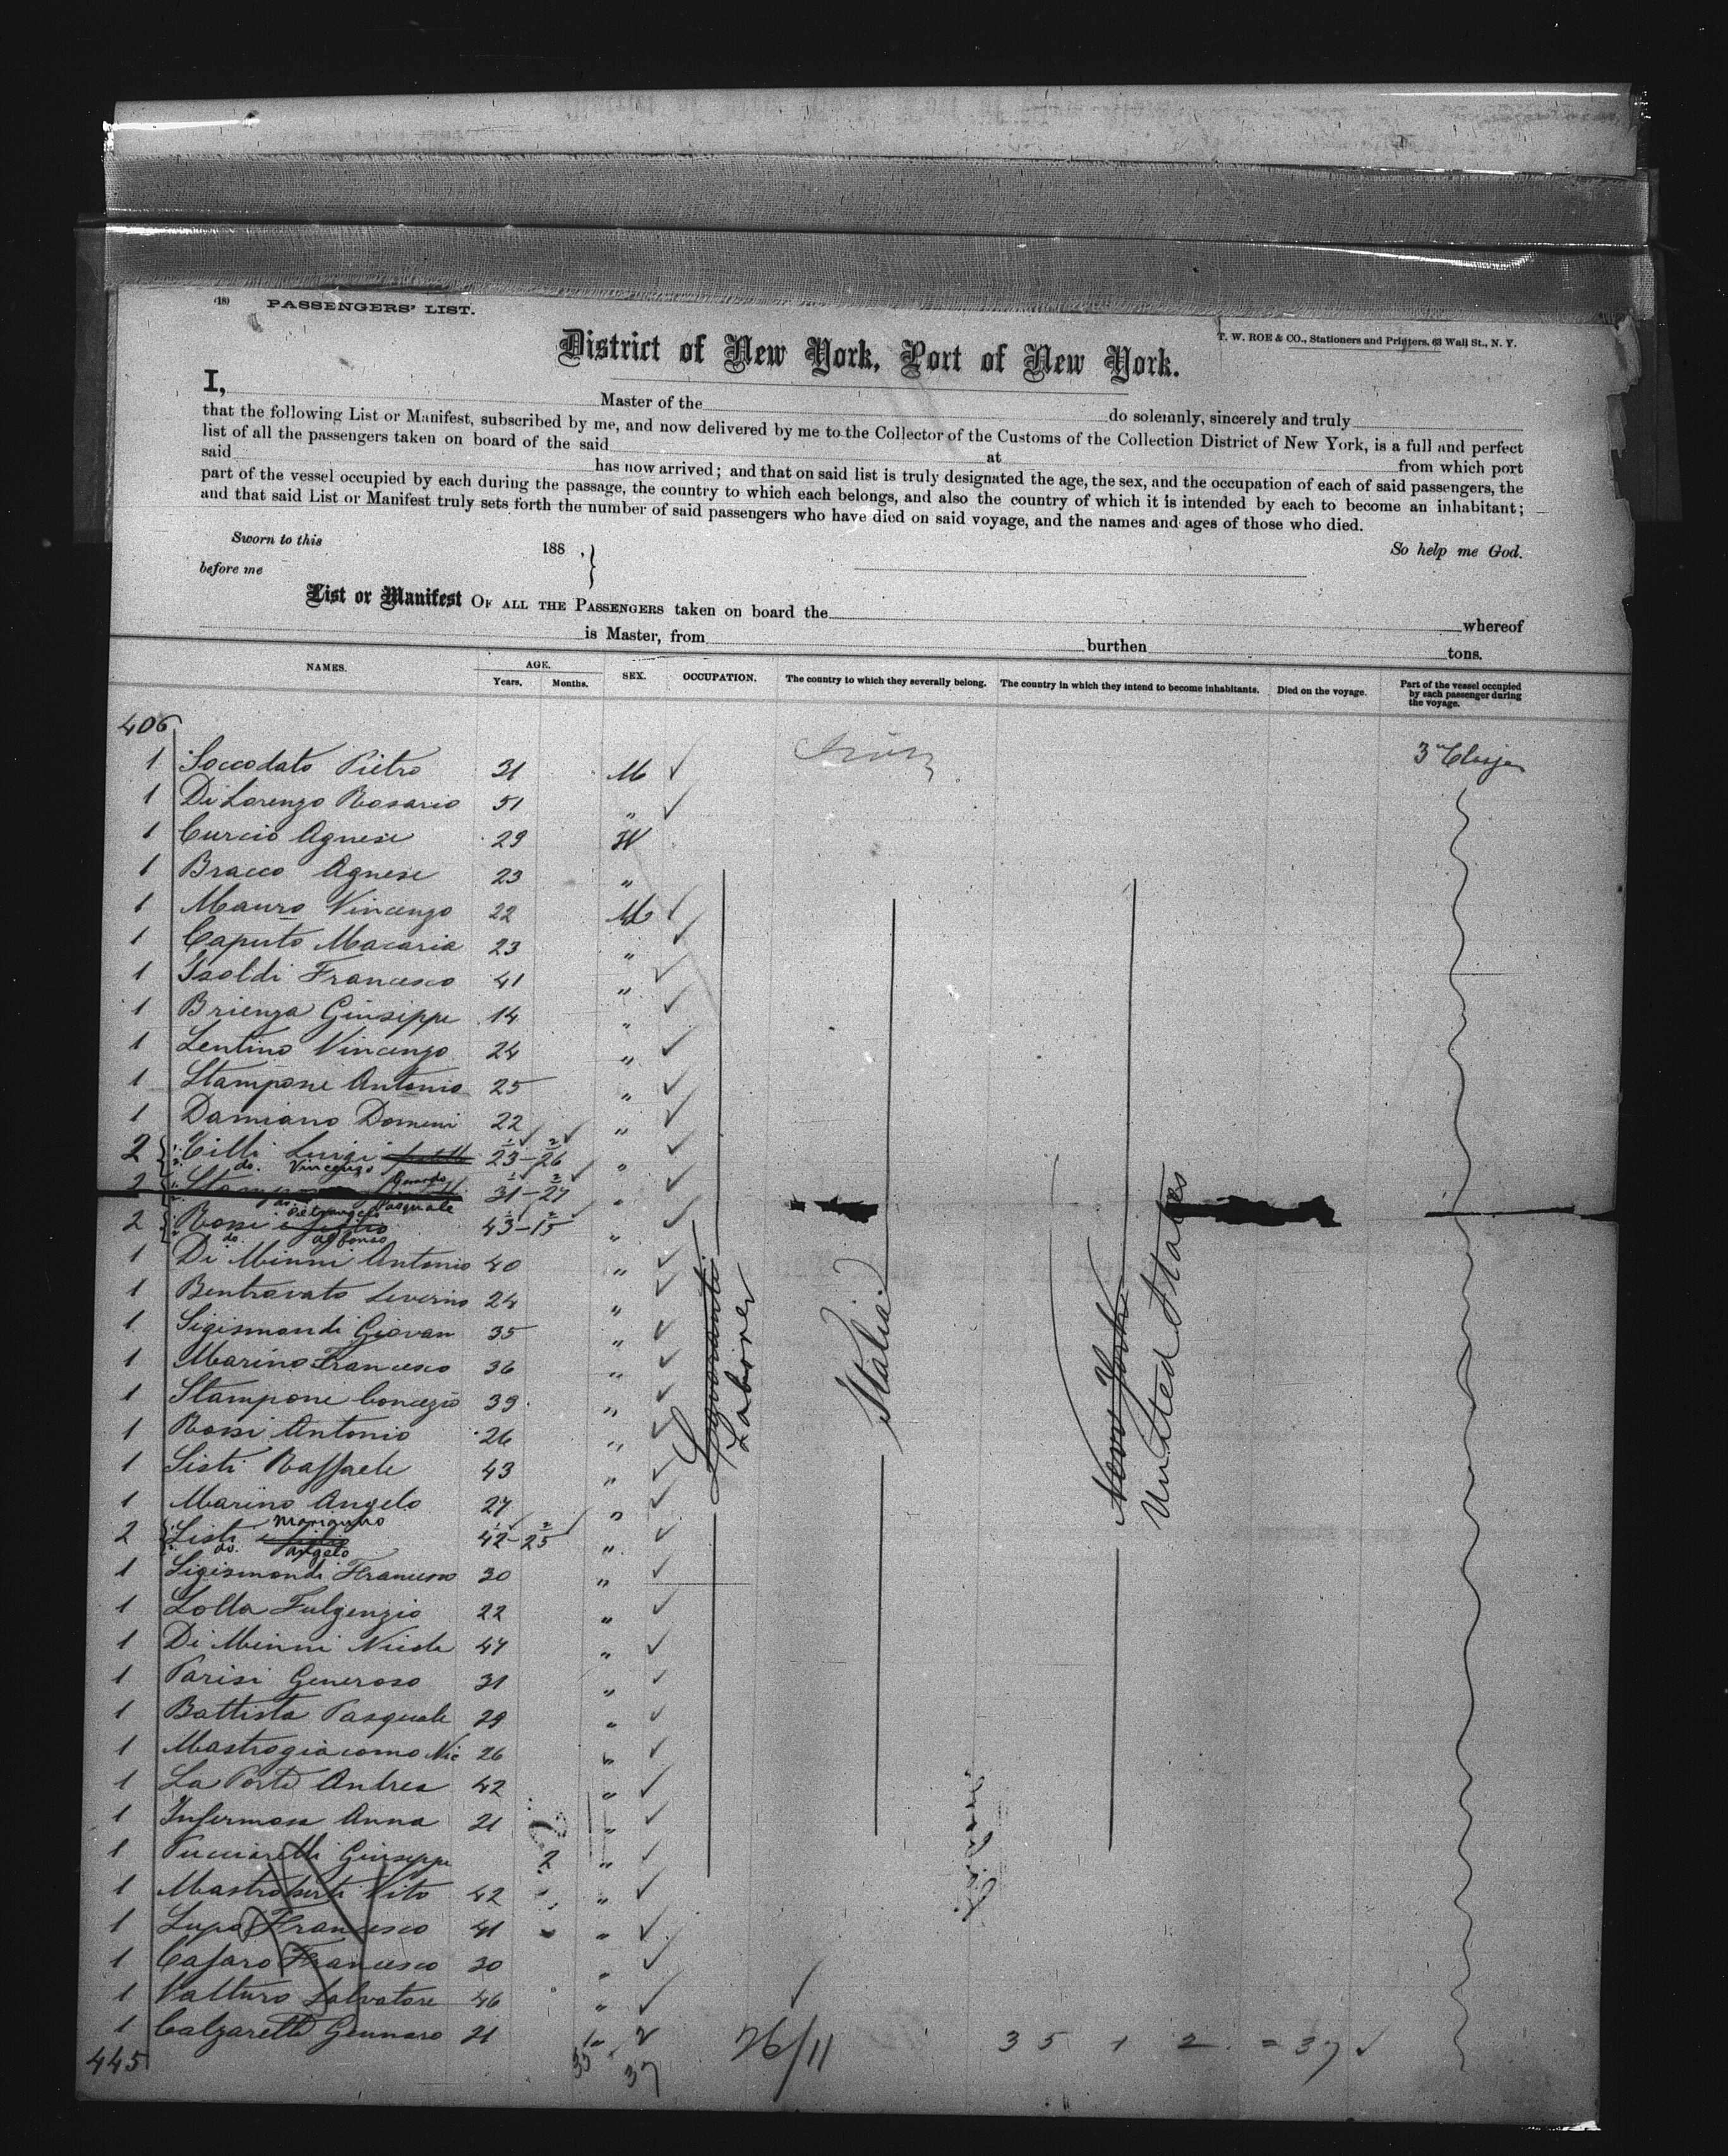 (18) PASSENGERS' LIST.
T. W. ROE & CO., Stationers and Printers, 63 Wall St., N. Y.
District of New York, Port of New York.
I, Master of the do solemnly, sincerely and truly
that the following List or Manifest, subscribed by me, and now delivered by me to the Collector of the Customs of the Collection District of New York, is a full and perfect
list of all the passengers taken on board of the said at from which port
said has now arrived; and that on said list is truly designated the age, the sex, and the occupation of each of said passengers, the
part of the vessel occupied by each during the passage, the country to which each belongs, and also the country of which it is intended by each to become an inhabitant;
and that said List or Manifest truly sets forth the number of said passengers who have died on said voyage, and the names and ages of those who died.
Sworn to this 188 , } So help me God.
before me
List or Manifest OF ALL THE PASSENGERS taken on board the whereof
is Master, from burthen tons.
NAMES. AGE. Years. Months. SEX. OCCUPATION. The country to which they severally belong. The country in which they intend to become inhabitants. Died on the voyage. Part of the vessel occupied by each passenger during the voyage.
406
1 Soccodato Pietro 31 M ✓ 3
1 Di Lorenzo Rosario 51 " ✓
1 Curcio Agnese 29 W
1 Bracco Agnese 23 "
1 Mauro Vincenzo 22 M ✓
1 Caputo Macaria 23 " ✓
1 Isoldi Francesco 41 " ✓
1 Brienza Giuseppe 14 " ✓
1 Lentino Vincenzo 24 " ✓
1 Stampone Antonio 25 " ✓
1 Damiano Domeni 22 " ✓
2 Cilli Luigi 23-26 " ✓
do. Vincenzo
2 31-27 " ✓
Pasquale
2 Rossi Pietrangelo 43-15 " ✓
do. Alfonso
1 Di Minni Antonio 40 " ✓
1 Bentravato Severino 24 " ✓
1 Sigismondi Giovan 35 " ✓
1 Marino Francesco 36 " ✓
1 Stampone Concezio 39 " ✓
1 Rossi Antonio 26 " ✓
1 Sisti Raffaele 43 " ✓
1 Marino Angelo 27 " ✓
2 Sisti Marianno 42-25 " ✓
do. Angelo
1 Sigismondi Francesco 30 " ✓
1 Lolla Fulgenzio 22 " ✓
1 Di Minni Nicola 47 " ✓
1 Parisi Generoso 31 " ✓
1 Battista Pasquale 29 " ✓
1 Mastrogiacomo Nic 26 " ✓
1 La Porta Andrea 42 " ✓
1 Infermosa Anna 21 " ✓
1 Pucciarelli Giuseppe 2 " ✓
1 Mastroberti Vito 42 " ✓
1 Lupo Francesco 41 " ✓
1 Cafaro Francesco 30 " ✓
1 Valturo Salvatore 46 " ✓
1 Calzaretti Gennaro 21 "
445 35 37 76/11 35 1 2 = 37 ✓
Laborer
Italia
New York
United States